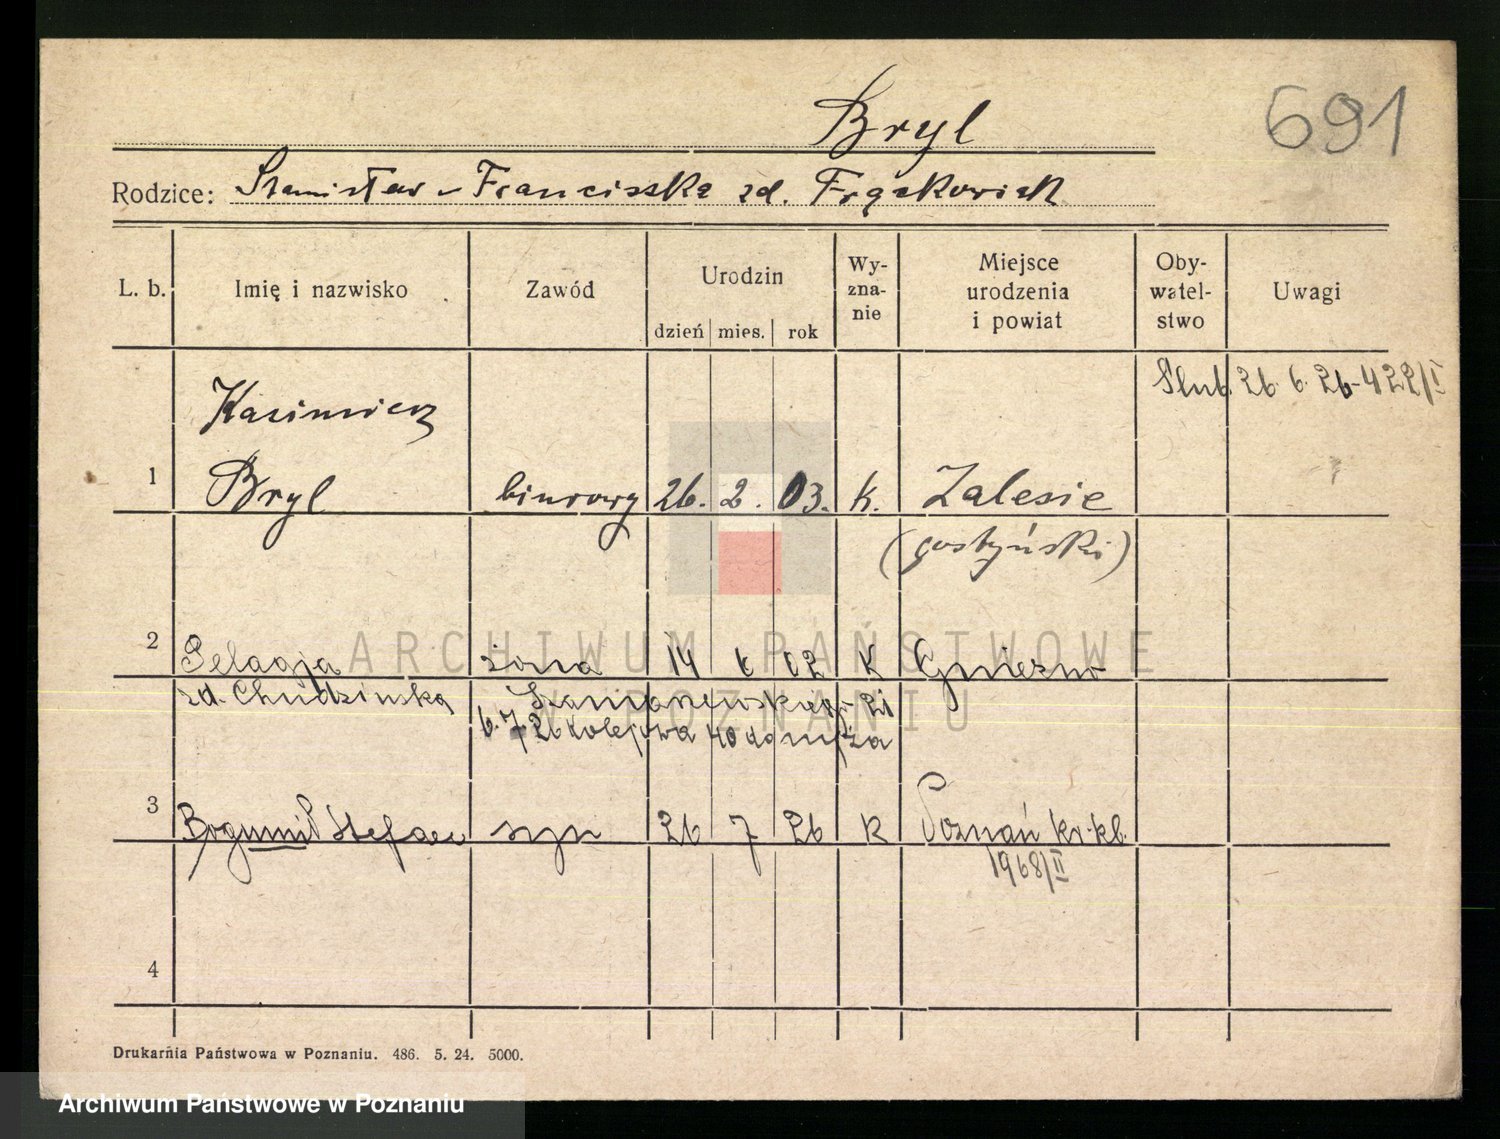 Bryl
691
Rodzice: Stanisław - Franciszka zd. Frąckowiak
L. b.
Imię i nazwisko
Zawód
Urodzin
dzień mies. rok
Wy-
zna-
nie
Miejsce
urodzenia
i powiat
Oby-
watel-
stwo
Uwagi
Ślub. 26. 6. 26 - 422/I
Kazimierz
1 Bryl biurowy 26. 2. 03. k. Zalesie
(gostyński)
2 Pelagja żona 14 02 K Gniezno
zd. Chudzińska
6. 7 26 Kolejowa 40 do męża
3 Bogumił Stefan syn 26 7 26 K Poznań kr. kl.
1968/II
4
ARCHIWUM PAŃSTWOWE
W POZNANIU
Drukarnia Państwowa w Poznaniu. 486. 5. 24. 5000.
Archiwum Państwowe w Poznaniu